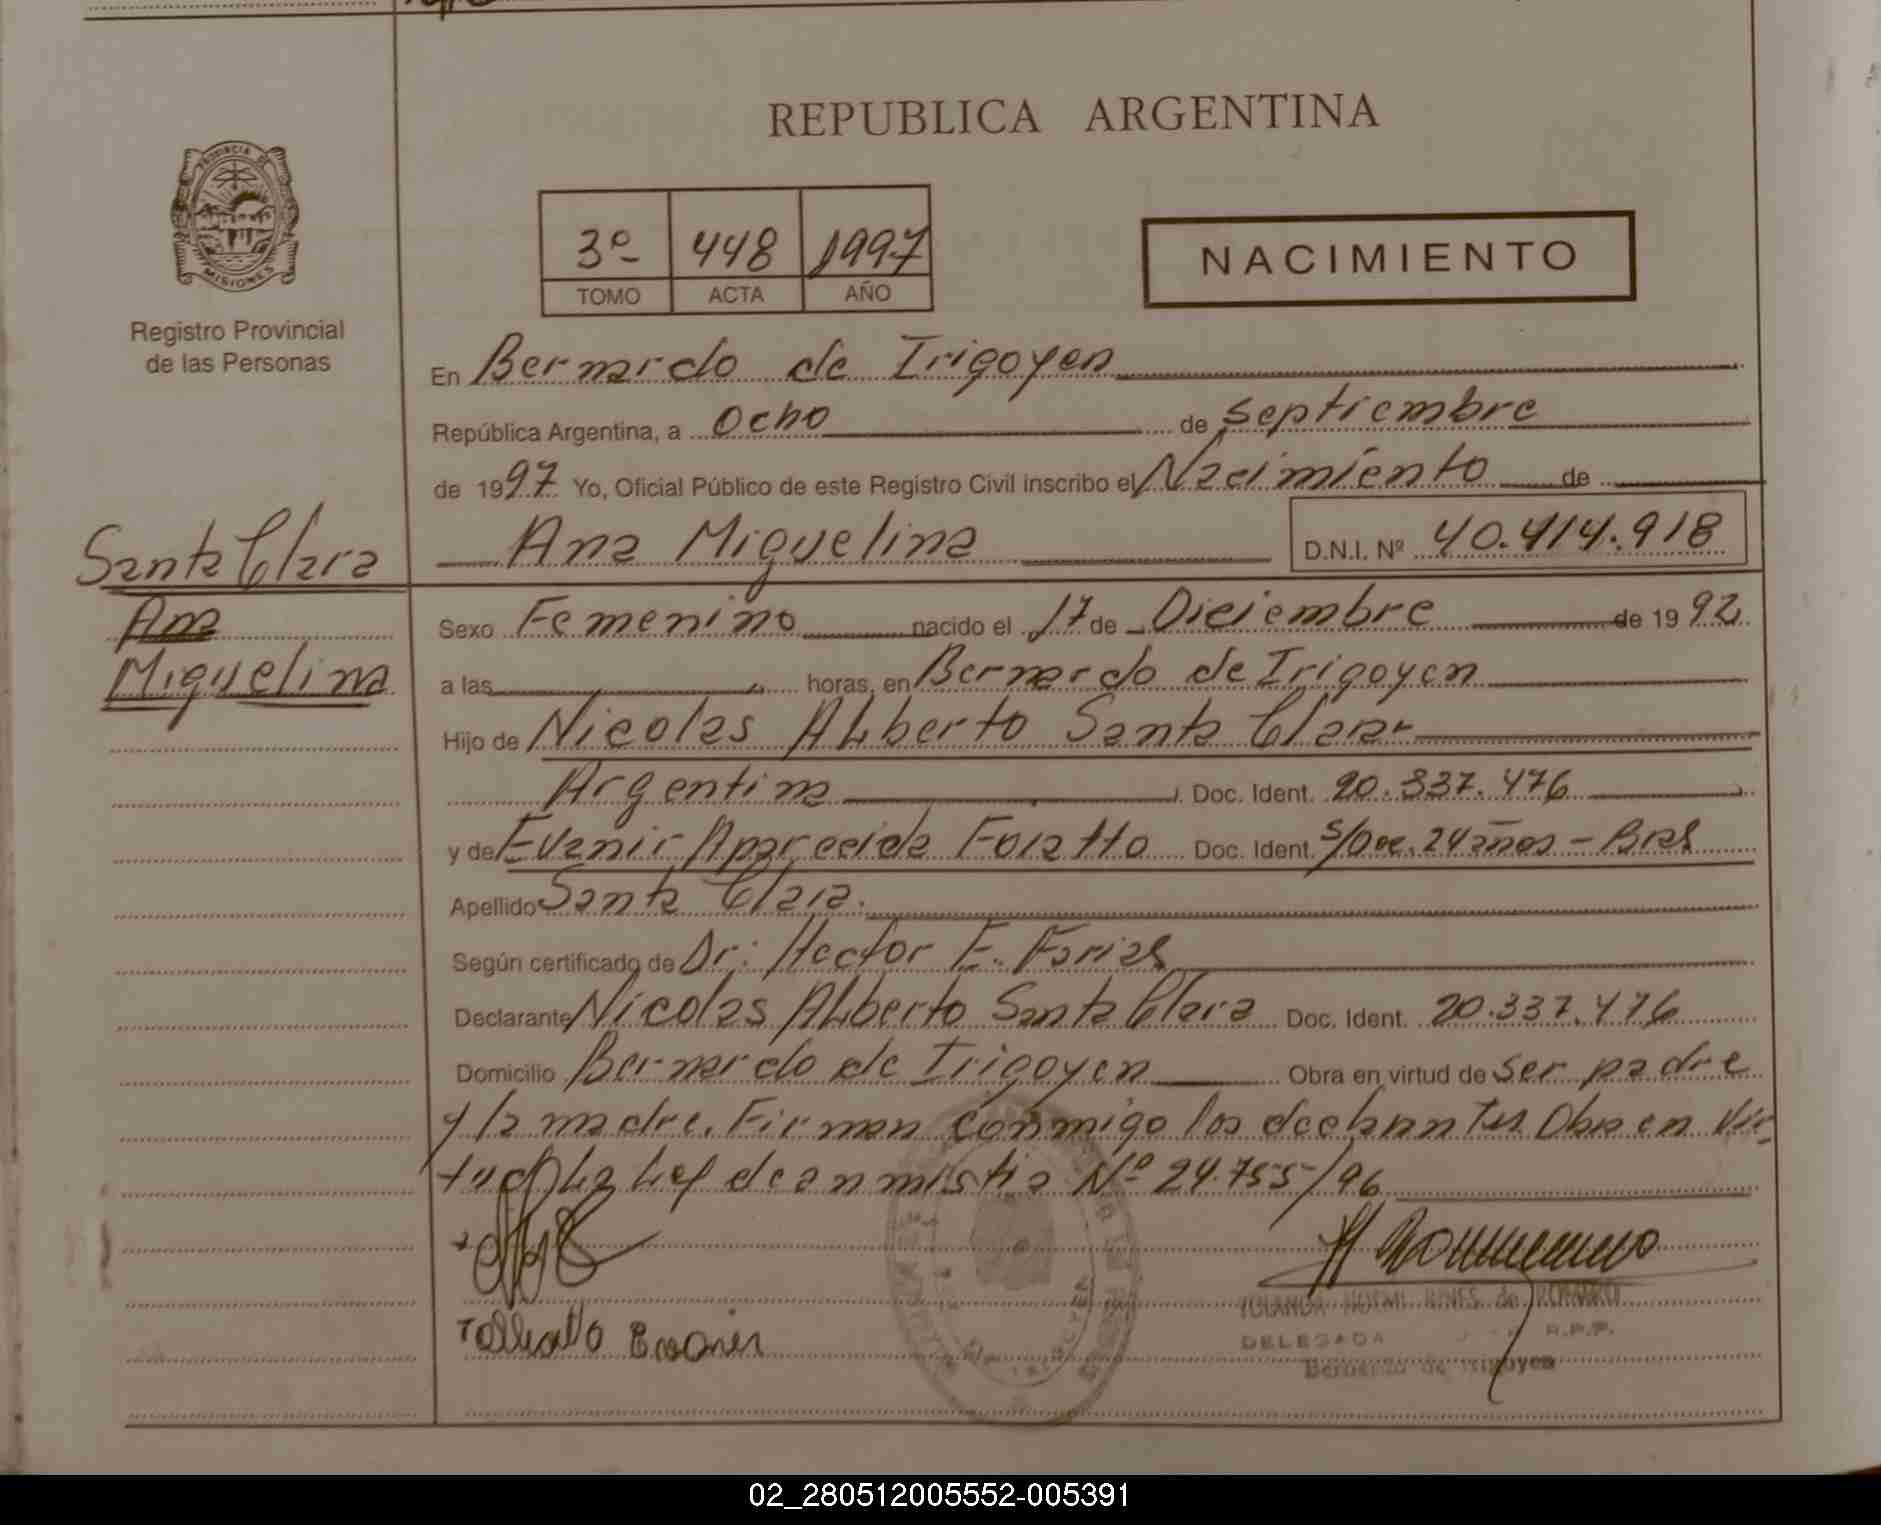 REPUBLICA ARGENTINA
PROVINCIA DE MISIONES
Registro Provincial
de las Personas
3º 448 1997
TOMO ACTA AÑO
NACIMIENTO
En Bernardo de Irigoyen
República Argentina, a ocho de septiembre
de 1997 Yo, Oficial Público de este Registro Civil inscribo el Nacimiento de
Ana Miguelina D.N.I. Nº 40.414.918
Santa Clara
Ana
Miguelina
Sexo Femenino nacido el 17 de Diciembre de 1992
a las horas, en Bernardo de Irigoyen
Hijo de Nicolas Alberto Santa Clara
Argentina Doc. Ident. 20.337.476
y de Evanir Aparecida Foratto Doc. Ident. S/Doc. 24 años - Bras
Apellido Santa Clara.
Según certificado de Dr: Hector E. Farias
Declarante Nicolas Alberto Santa Clara Doc. Ident. 20.337.476
Domicilio Bernardo de Irigoyen Obra en virtud de ser padre
y la madre. Firman conmigo los declarantes Obra en Vir-
tud La Ley de anmistia Nº 24.755/96
YOLANDA NOEMI de ROMERO
DELEGADA R.P.P.
Bernardo de Irigoyen
02_280512005552-005391